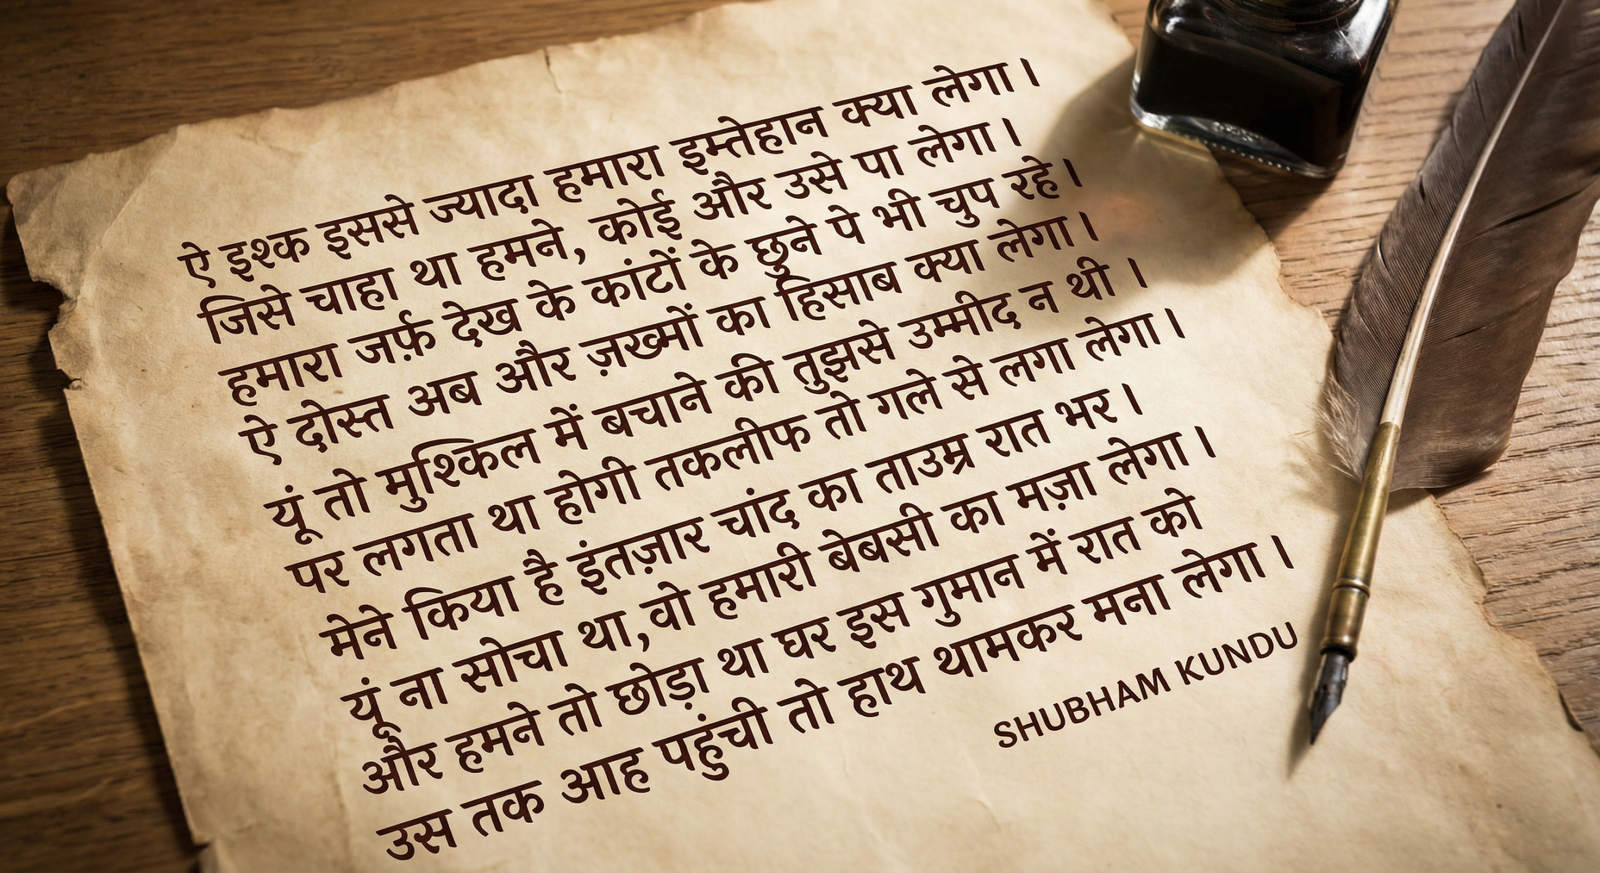 ऐ इश्क इससे ज्यादा हमारा इम्तेहान क्या लेगा।
जिसे चाहा था हमने, कोई और उसे पा लेगा।
हमारा जर्फ़ देख के कांटों के छूने पे भी चुप रहे।
ऐ दोस्त अब और ज़ख्मों का हिसाब क्या लेगा।
यूं तो मुश्किल में बचाने की तुझसे उम्मीद न थी ।
पर लगता था होगी तकलीफ तो गले से लगा लेगा।
मेने किया है इंतज़ार चांद का ताउम्र रात भर।
यूं ना सोचा था,वो हमारी बेबसी का मज़ा लेगा।
और हमने तो छोड़ा था घर इस गुमान में रात को
उस तक आह पहुंची तो हाथ थामकर मना लेगा।
SHUBHAM KUNDU